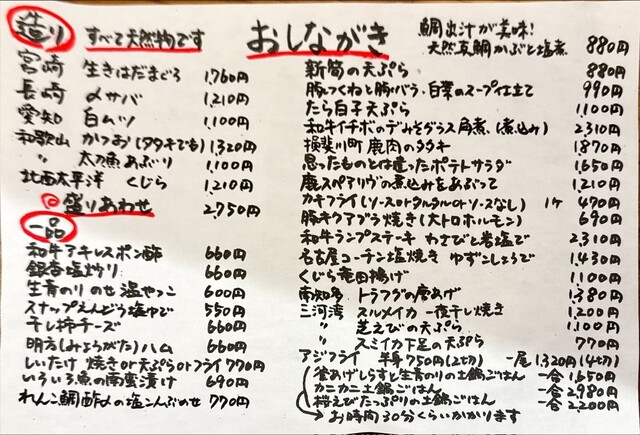 おしながき
造り すべて天然物です
宮崎 生きはだまぐろ 1,760円
長崎 〆サバ 1,210円
愛知 白ムツ 1,100円
和歌山 かつお(タタキでも) 1,320円
〃 太刀魚あぶり 1,100円
北西太平洋 くじら 1,210円
◎盛りあわせ 2,750円
一品
和牛アキレスポン酢 660円
銀杏塩炒り 660円
生青のりのせ温やっこ 600円
スナップえんどう塩ゆで 550円
干し柿チーズ 660円
明方(みょうがた)ハム 660円
しいたけ 焼きor天ぷらorフライ 770円
いろいろ魚の南蛮漬け 690円
れんこ鯛酢〆の塩こんぶのせ 770円
鯛出汁が美味!
天然真鯛かぶと塩煮 880円
新筍の天ぷら 880円
豚つくねと豚バラ、白菜のスープ仕立て 990円
たら白子天ぷら 1,100円
和牛イチボのデミグラス角煮、(煮込み) 2,310円
揖斐川町 鹿肉のタタキ 1,870円
思ったものとは違ったポテトサラダ 1,650円
鹿スペアリヴの煮込みをあぶって 1,210円
カキフライ(ソースorタルタルorソースなし) 1ヶ 470円
豚キクアブラ焼き(大トロホルモン) 690円
和牛ランプステーキ わさびと岩塩で 2,310円
名古屋コーチン塩焼き ゆずこしょうで 1,430円
くじら竜田揚げ 1,100円
南知多 トラフグの唐あげ 1,380円
三河湾 スルメイカ一夜干し焼き 1,200円
〃 芝えびの天ぷら 1,100円
〃 スミイカ下足の天ぷら 770円
アジフライ 半身750円(2切) 一尾1,320円(4切)
釜あげしらすと生青のりの土鍋ごはん 一合1,650円
カニカニ土鍋ごはん 一合2,980円
桜えびたっぷりの土鍋ごはん 一合2,200円
お時間30分くらいかかります